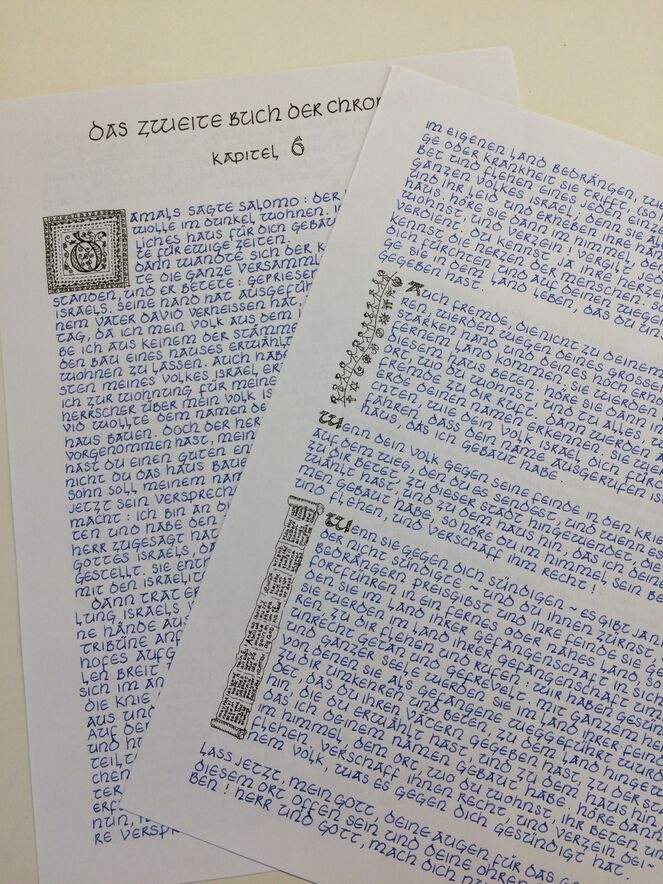 DAS ZWEITE BUCH DER
KAPITEL 6
DAMALS SAGTE SALOMO: DER
WOLLE IM DUNKEL WOHNEN.
LICHES HAUS FÜR DICH GEBAU
TE FÜR EWIGE ZEITEN.
DANN WANDTE SICH DER K
TE DIE GANZE VERSAMML
STANDEN, UND ER BETETE: GEPRIESEN
ISRAELS. SEINE HAND HAT AUSGEFÜH
NEM VATER DAVID VERHEISSEN HAT,
TAG, DA ICH MEIN VOLK AUS DEM
BE ICH AUS KEINEM DER STÄMME
DEN BAU EINES HAUSES ERWÄHLT
WOHNEN ZU LASSEN. AUCH HABE
STEN MEINES VOLKES ISRAEL ER
ICH ZUR WOHNUNG FÜR MEINE
HERRSCHER ÜBER MEIN VOLK IS
VID WOLLTE DEM NAMEN DE
HAUS BAUEN. DOCH DER HER
VORGENOMMEN HAST, MEIN
HAST DU EINEN GUTEN EN
NICHT DU DAS HAUS BAUE
SOHN SOLL MEINEM NAM
JETZT SEIN VERSPRECH
MACHT: ICH BIN AN D
TEN UND HABE DEN
HERR ZUGESAGT HAT
GOTTES ISRAELS, DA
GESTELLT. SIE ENTH
MIT DEN ISRAELIT
DANN TRAT ER
LUNG ISRAELS
NE HÄNDE AUS
TRIBÜNE ANF
HOFES AUFG
LEN BREIT
SICH IM AN
DIE KNIE
AUS UND
AUF DE
UND H
TEILT
CHEN
TER
ERF
NUN,
RE VERSPR
IM EIGENEN LAND BEDRÄNGEN,
GE ODER KRANKHEIT SIE TRIFFT, (SO
BET UND FLEHEN EINES JEDEN
GANZEN VOLKES ISRAEL, DENN SIE AL
UND IHR LEID UND ERHEBEN IHRE HÄND
HAUS, HÖRE SIE DANN IM HIMMEL, DEM
WOHNST, UND VERZEIH! VERGILT JED
VERDIENT. DU KENNST JA IHRE HERZEN
KENNST DIE HERZEN DER MENSCHEN. S
DICH FÜRCHTEN UND AUF DEINEN WEGE
GE SIE IN DEM LAND LEBEN, DAS DU UN
GEGEBEN HAST.
AUCH FREMDE, DIE NICHT ZU DEINEM
REN, WERDEN WEGEN DEINES GROSSE
STARKEN HAND UND DEINES HOCH ERHO
FERNEM LAND KOMMEN. SIE WERDEN
DIESEM HAUS BETEN. HÖRE SIE DANN IM
ORT, WO DU WOHNST, UND TU ALLES,
FREMDE ZU DIR RUFT. DANN WERDEN
ERDE DEINEN NAMEN ERKENNEN. SIE WERD
ENTEN, WIE DEIN VOLK ISRAEL DICH FÜRC
FAHREN, DASS DEIN NAME AUSGERUFEN IS
HAUS, DAS ICH GEBAUT HABE.
WENN DEIN VOLK GEGEN SEINE FEINDE IN DEN KRIE
AUF DEM WEG, DEN DU ES SENDEST, UND WENN ES
ZU DIR BETET, ZU DIESER STADT HINGEWENDET, DIE
WÄHLT HAST, UND ZU DEM HAUS HIN, DAS ICH DEINE
MEN GEBAUT HABE, SO HÖRE DU IM HIMMEL SEIN BE
UND FLEHEN, UND VERSCHAFF IHM RECHT!
WENN SIE GEGEN DICH SÜNDIGEN ~ ES GIBT JA NIEMAN
DER NICHT SÜNDIGTE ~ UND DU IHNEN ZÜRNST,
BEDRÄNGERN PREISGIBST UND IHRE FEINDE SIE GEF
FORTFÜHREN IN EIN FERNES ODER NAHES LAND, SO
DEN SIE IM LAND IHRER GEFANGENSCHAFT IN SICH
REN, ZU DIR FLEHEN UND RUFEN: WIR HABEN GESÜND
UNRECHT GETAN UND GEFREVELT. MIT GANZEM HE
VON GANZER SEELE WERDEN SIE IM LAND IHRER FEIN
DET, DIE SIE ALS GEFANGENE WEGGEFÜHRT WURD
ZU DIR UMKEHREN UND BETEN, ZU DEM LAND HINGE
HIN, DAS DU IHREN VÄTERN GEGEBEN HAST, ZU DER ST
DAS ICH DEINEM NAMEN GEBAUT HABE. HÖRE DANN
IM HIMMEL, DEM ORT, WO DU WOHNST, IHR BETEN UN
FLEHEN, VERSCHAFF IHNEN RECHT, UND VERZEIH DEI~
NEM VOLK, WAS ES GEGEN DICH GESÜNDIGT HAT.
LASS JETZT, MEIN GOTT, DEINE AUGEN FÜR DAS GE
DIESEM ORT OFFEN SEIN UND DEINE OHREN
BEN! HERR UND GOTT, MACH DICH NUN